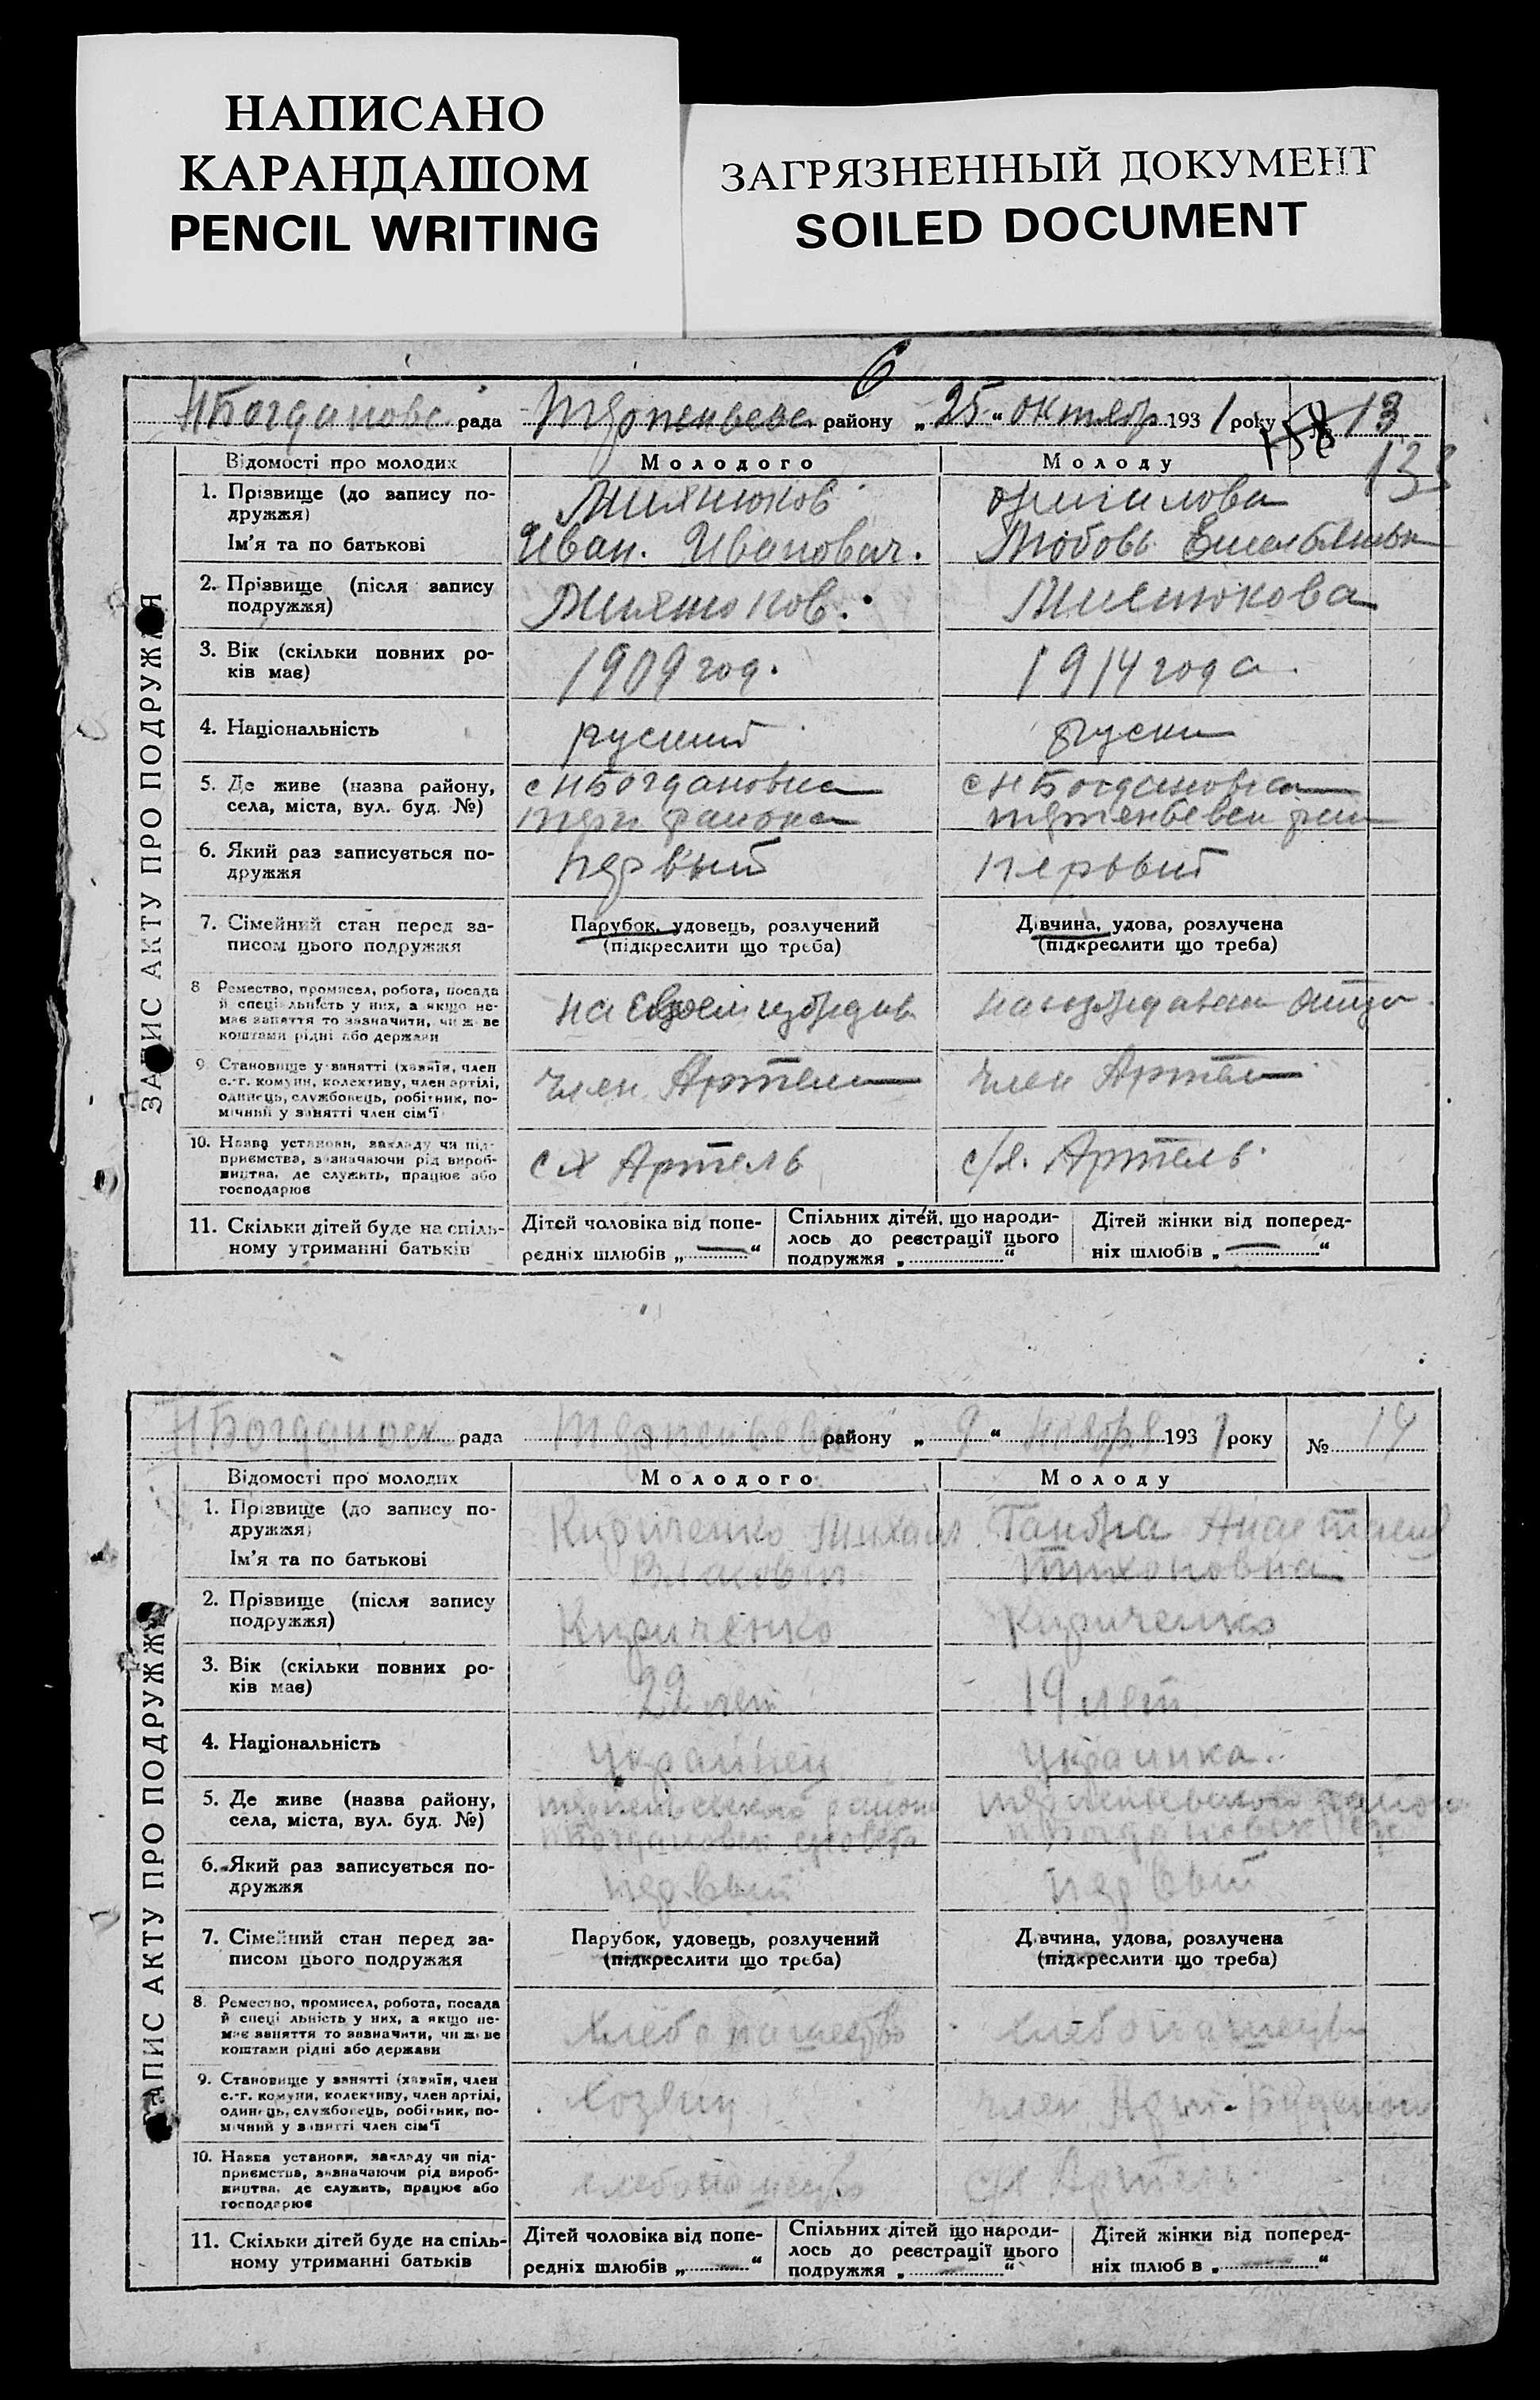 НАПИСАНО
КАРАНДАШОМ
PENCIL WRITING
ЗАГРЯЗНЕННЫЙ ДОКУМЕНТ
SOILED DOCUMENT
6
НБогдановс рада Терпеньевс району „25“ октябр 1931 року № 13
133
ЗАПИС АКТУ ПРО ПОДРУЖЖЯ
Відомості про молодих
Молодого
Молоду
1. Прізвище (до запису по-
дружжя)
Ім'я та по батькові
Милянюков
Иван. Иванович.
Любовь
2. Прізвище (після запису
подружжя)
3. Вік (скільки повних ро-
ків має)
1909 год.
1914 года.
4. Національність
руский
руски
5. Де живе (назва району,
села, міста, вул. буд. №)
с НБогдановка
терп района
с НБогдановка
6. Який раз записується по-
дружжя
первый
первый
7. Сімейний стан перед за-
писом цього подружжя
Парубок, удовець, розлучений
(підкреслити що треба)
Дівчина, удова, розлучена
(підкреслити що треба)
8 Ремество, промисел, робота, посада
й спеціяльність у них, а якщо не-
має заняття то зазначити, чи живе
коштами рідні або держави
на своем
на отца
9. Становище у занятті (хазяїн, член
с.-г. комуни, колективу, член артілі,
одинець, службовець, робітник, по-
мічний у занятті член сім'ї
член Артели
член Артели
10. Назва установи, закладу чи під-
приємства, зазначаючи рід вироб-
ництва, де служить, працює або
господарює
с х Артель
с/х. Артель.
11. Скільки дітей буде на спіль-
ному утриманні батьків
Дітей чоловіка від попе-
редніх шлюбів „ — “
Спільних дітей, що народи-
лось до реєстрації цього
подружжя „ “
Дітей жінки від поперед-
ніх шлюбів „ — “
НБогдановск рада Терпеньевс району „9“ ноября 1931 року № 14
ЗАПИС АКТУ ПРО ПОДРУЖЖЯ
Відомості про молодих
Молодого
Молоду
1. Прізвище (до запису по-
дружжя)
Ім'я та по батькові
Кириченко Михаил
Власович
Анастасия
Тихоновна
2. Прізвище (після запису
подружжя)
Кириченко
Кириченко
3. Вік (скільки повних ро-
ків має)
22 лет
19 лет
4. Національність
Украинец
Украинка.
5. Де живе (назва району,
села, міста, вул. буд. №)
Терпеньевского района
НБогдановск совета
Терпеньевского района
6. Який раз записується по-
дружжя
первый
первый
7. Сімейний стан перед за-
писом цього подружжя
Парубок, удовець, розлучений
(підкреслити що треба)
Дівчина, удова, розлучена
(підкреслити що треба)
8. Ремество, промисел, робота, посада
й спеціяльність у них, а якщо не-
має заняття то зазначити, чи живе
коштами рідні або держави
хлебопашество
9. Становище у занятті (хазяїн, член
с.-г. комуни, колективу, член артілі,
одинець, службовець, робітник, по-
мічний у занятті член сім'ї
Хозяин
член Арт.
10. Назва установи, закладу чи під-
приємства, зазначаючи рід вироб-
ництва, де служить, працює або
господарює
с/х Артель
11. Скільки дітей буде на спіль-
ному утриманні батьків
Дітей чоловіка від попе-
редніх шлюбів „ — “
Спільних дітей що народи-
лось до реєстрації цього
подружжя „ — “
Дітей жінки від поперед-
ніх шлюб в „ — “